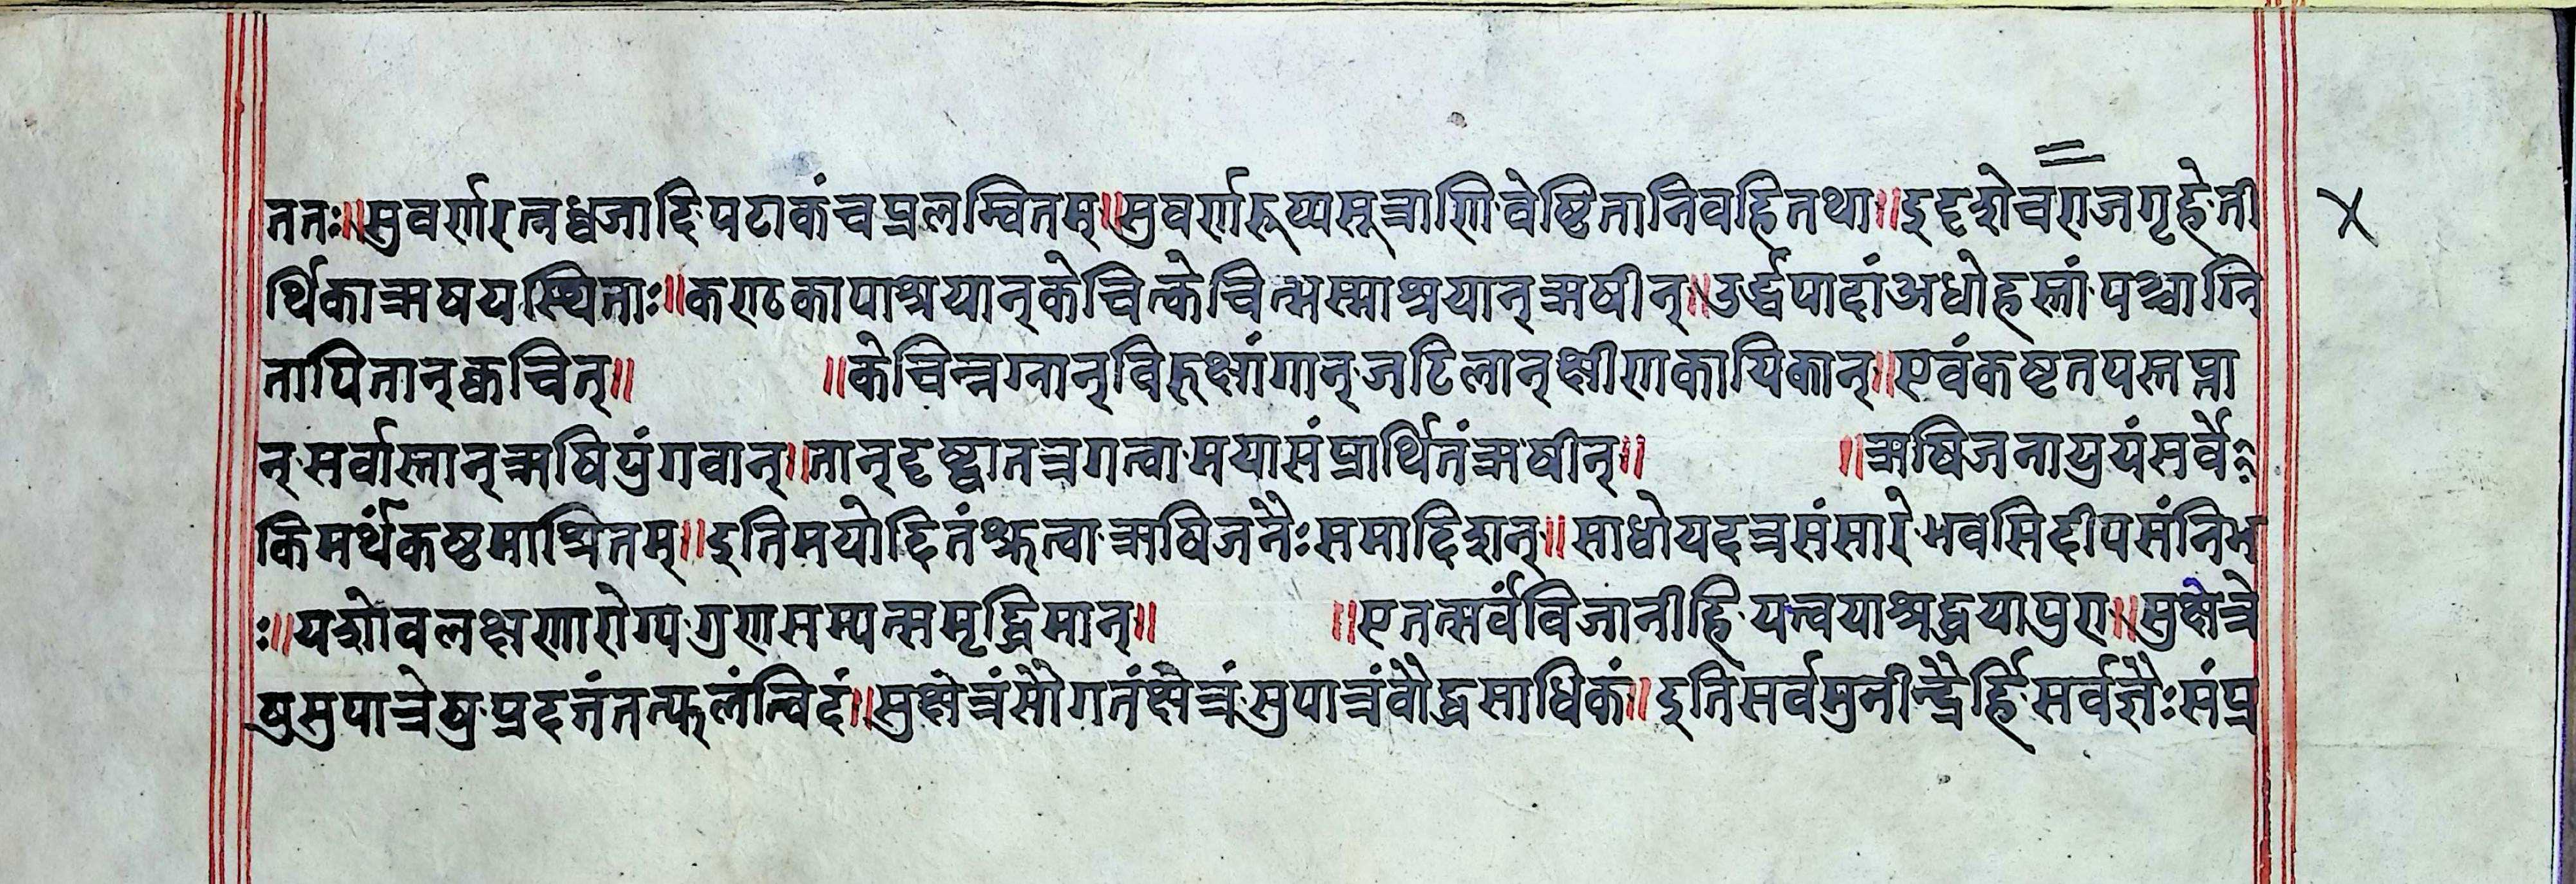 ततः॥सुवर्णरत्नध्वजादिपटाकंचप्रलम्वितम्॥सुवर्णरूप्यसूत्राणिवेष्टितानिवहितथा॥इदृशेचराजगृहेती
र्थिकाऋषयस्थिताः॥कण्टकापाश्रयान्केचित्केचित्भस्माश्रयान्ऋषीन्॥उर्द्धपादांअधोहस्तांपञ्चाग्नि
तापितान्क्वचित्॥ ॥केचिन्नग्नान्विरुक्षांगान्जटिलान्क्षीणकायिकान्॥एवंकष्टतपस्तप्ता
न्सर्वास्तान्ऋषिपुंगवान्॥तान्दृष्ट्वातत्रगत्वामयासंप्रार्थितंऋषीन्॥ ॥ऋषिजनायुयंसर्वे
किमर्थंकष्टमाश्रितम्॥इतिमयोदितंश्रुत्वाऋषिजनैःसमादिशन्॥साधोयदत्रसंसारेभवसिदीपसंनिभ
ः॥यशोवलक्षणारोग्यगुणसम्पत्समृद्धिमान्॥ ॥एतत्सर्वंविजानीहियत्त्वयाश्रद्धयापुरा॥सुक्षेत्रे
षुसुपात्रेषुप्रदत्तंतत्फलंत्विदं॥सुक्षेत्रंसौगतंक्षेत्रंसुपात्रंवौद्धसाधिकं॥इतिसर्वमुनीन्द्रैर्हिसर्वज्ञैःसंप्र